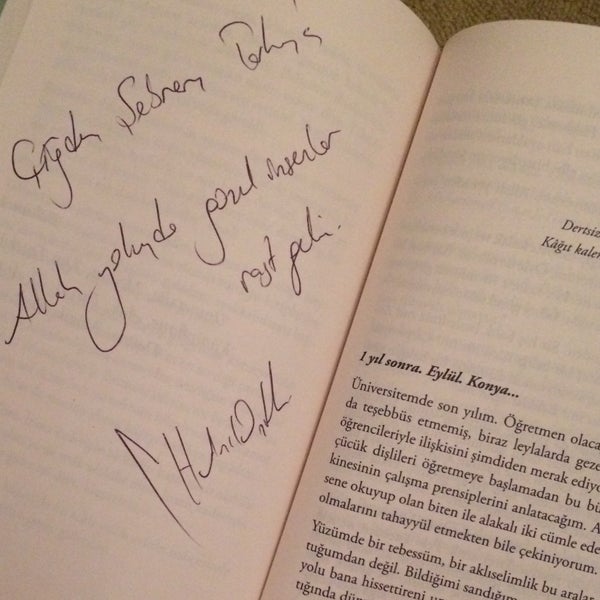 Çiğdem Şebnem
Allah yolunda güzel insanlar
rast gele.
Dertsiz
Kâğıt kalem
1 yıl sonra. Eylül. Konya...
Üniversitemde son yılım. Öğretmen olaca
da teşebbüs etmemiş, biraz leylalarda geze
öğrencileriyle ilişkisini şimdiden merak ediyo
çücük dişlileri öğretmeye başlamadan bu bü
kinesinin çalışma prensiplerini anlatacağım. A
sene okuyup olan biten ile alakalı iki cümle ede
olmalarını tahayyül etmekten bile çekiniyorum.
Yüzümde bir tebessüm, bir aklıselimlik bu aralar
tuğumdan değil. Bildiğimi sandığım
yolu bana hissettireni u
tığında dür